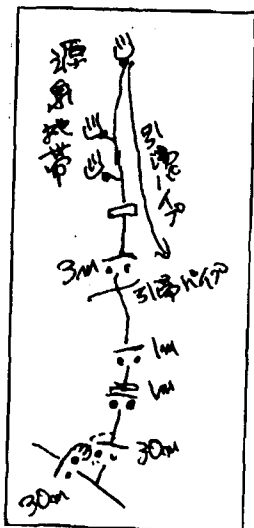 源泉地帯
引湯パイプ
3m
引湯パイプ
1m
1m
30cm
30cm